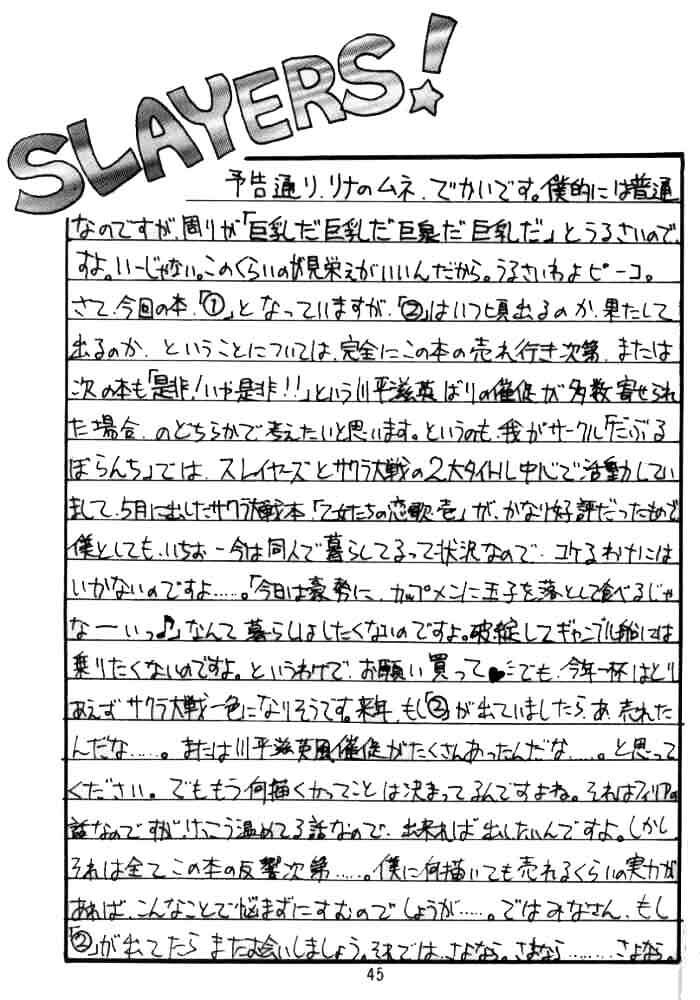 SLAYERS!
予告通り、リナのムネ、でかいです。僕的には普通
なのですが、周りが「巨乳だ巨乳だ巨臭だ巨乳だ」とうるさいので
すよ。いーじゃない。このくらいのが見栄えがいいんだから。うるさいわよピーコ。
さて、今回の本、「①」となっていますが、「②」はいつ頃出るのか、果たして
出るのか、ということについては、完全にこの本の売れ行き次第、または
次の本も「是非!いや是非!!」という川平滋英ばりの催促が多数寄せられ
た場合、のどちらかで考えたいと思います。というのも、我がサークル「だぶる
ぼらんち」では、スレイヤーズとサクラ大戦の2大タイトル中心で活動してい
まして、5月に出したサクラ大戦本「乙女たちの恋歌壱」が、かなり好評だったもので
僕としても、いちおー今は同人で暮らしてるって状況なので、コケるわけには
いかないのですよ……。「今日は豪勢に、カップメンに玉子を落として食べるじゃ
なーいっ♪」なんて暮らしはしたくないのですよ。破綻してギャンブル船には
乗りたくないのですよ。というわけで、お願い買って♥…でも、今年一杯はとり
あえずサクラ大戦一色になりそうです。来年、もし「②」が出ていましたら、あ、売れた
んだな……。または川平滋英風催促がたくさんあったんだな……。と思って
ください。でももう何描くかってことは決まってるんですよね。それはフィリアの
話なのですが、けっこう温めてる話なので、出来れば出したいんですよ。しかし
それは全てこの本の反響次第……。僕に何描いても売れるくらいの実力が
あれば、こんなことで悩まずにすむのでしょうが……。ではみなさん、もし
「②」が出てたらまたお会いしましょう。それでは、さよなら。さよなら………さよなら。
45